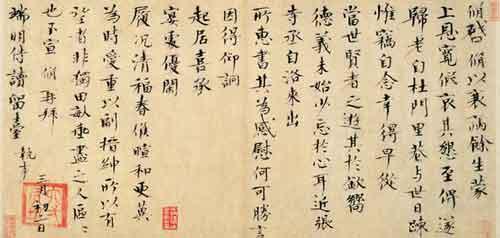 脩啓脩以衰病餘生蒙
上恩寬假哀其懇至俾遂
歸老自杜門里巷與世日疎
惟竊自念幸得早從
當世賢者之遊其於欽嚮
德義未始少忘於心耳近張
寺丞自洛來出
所惠書其為感慰何可勝言
因得仰詢
起居喜承
宴處優閑
履況清福春候暄和更冀
為時愛重以副搢紳所以有
望者非獨田畝垂盡之人區々
也不宣脩再拜
端明侍讀留臺執事
三月初二日